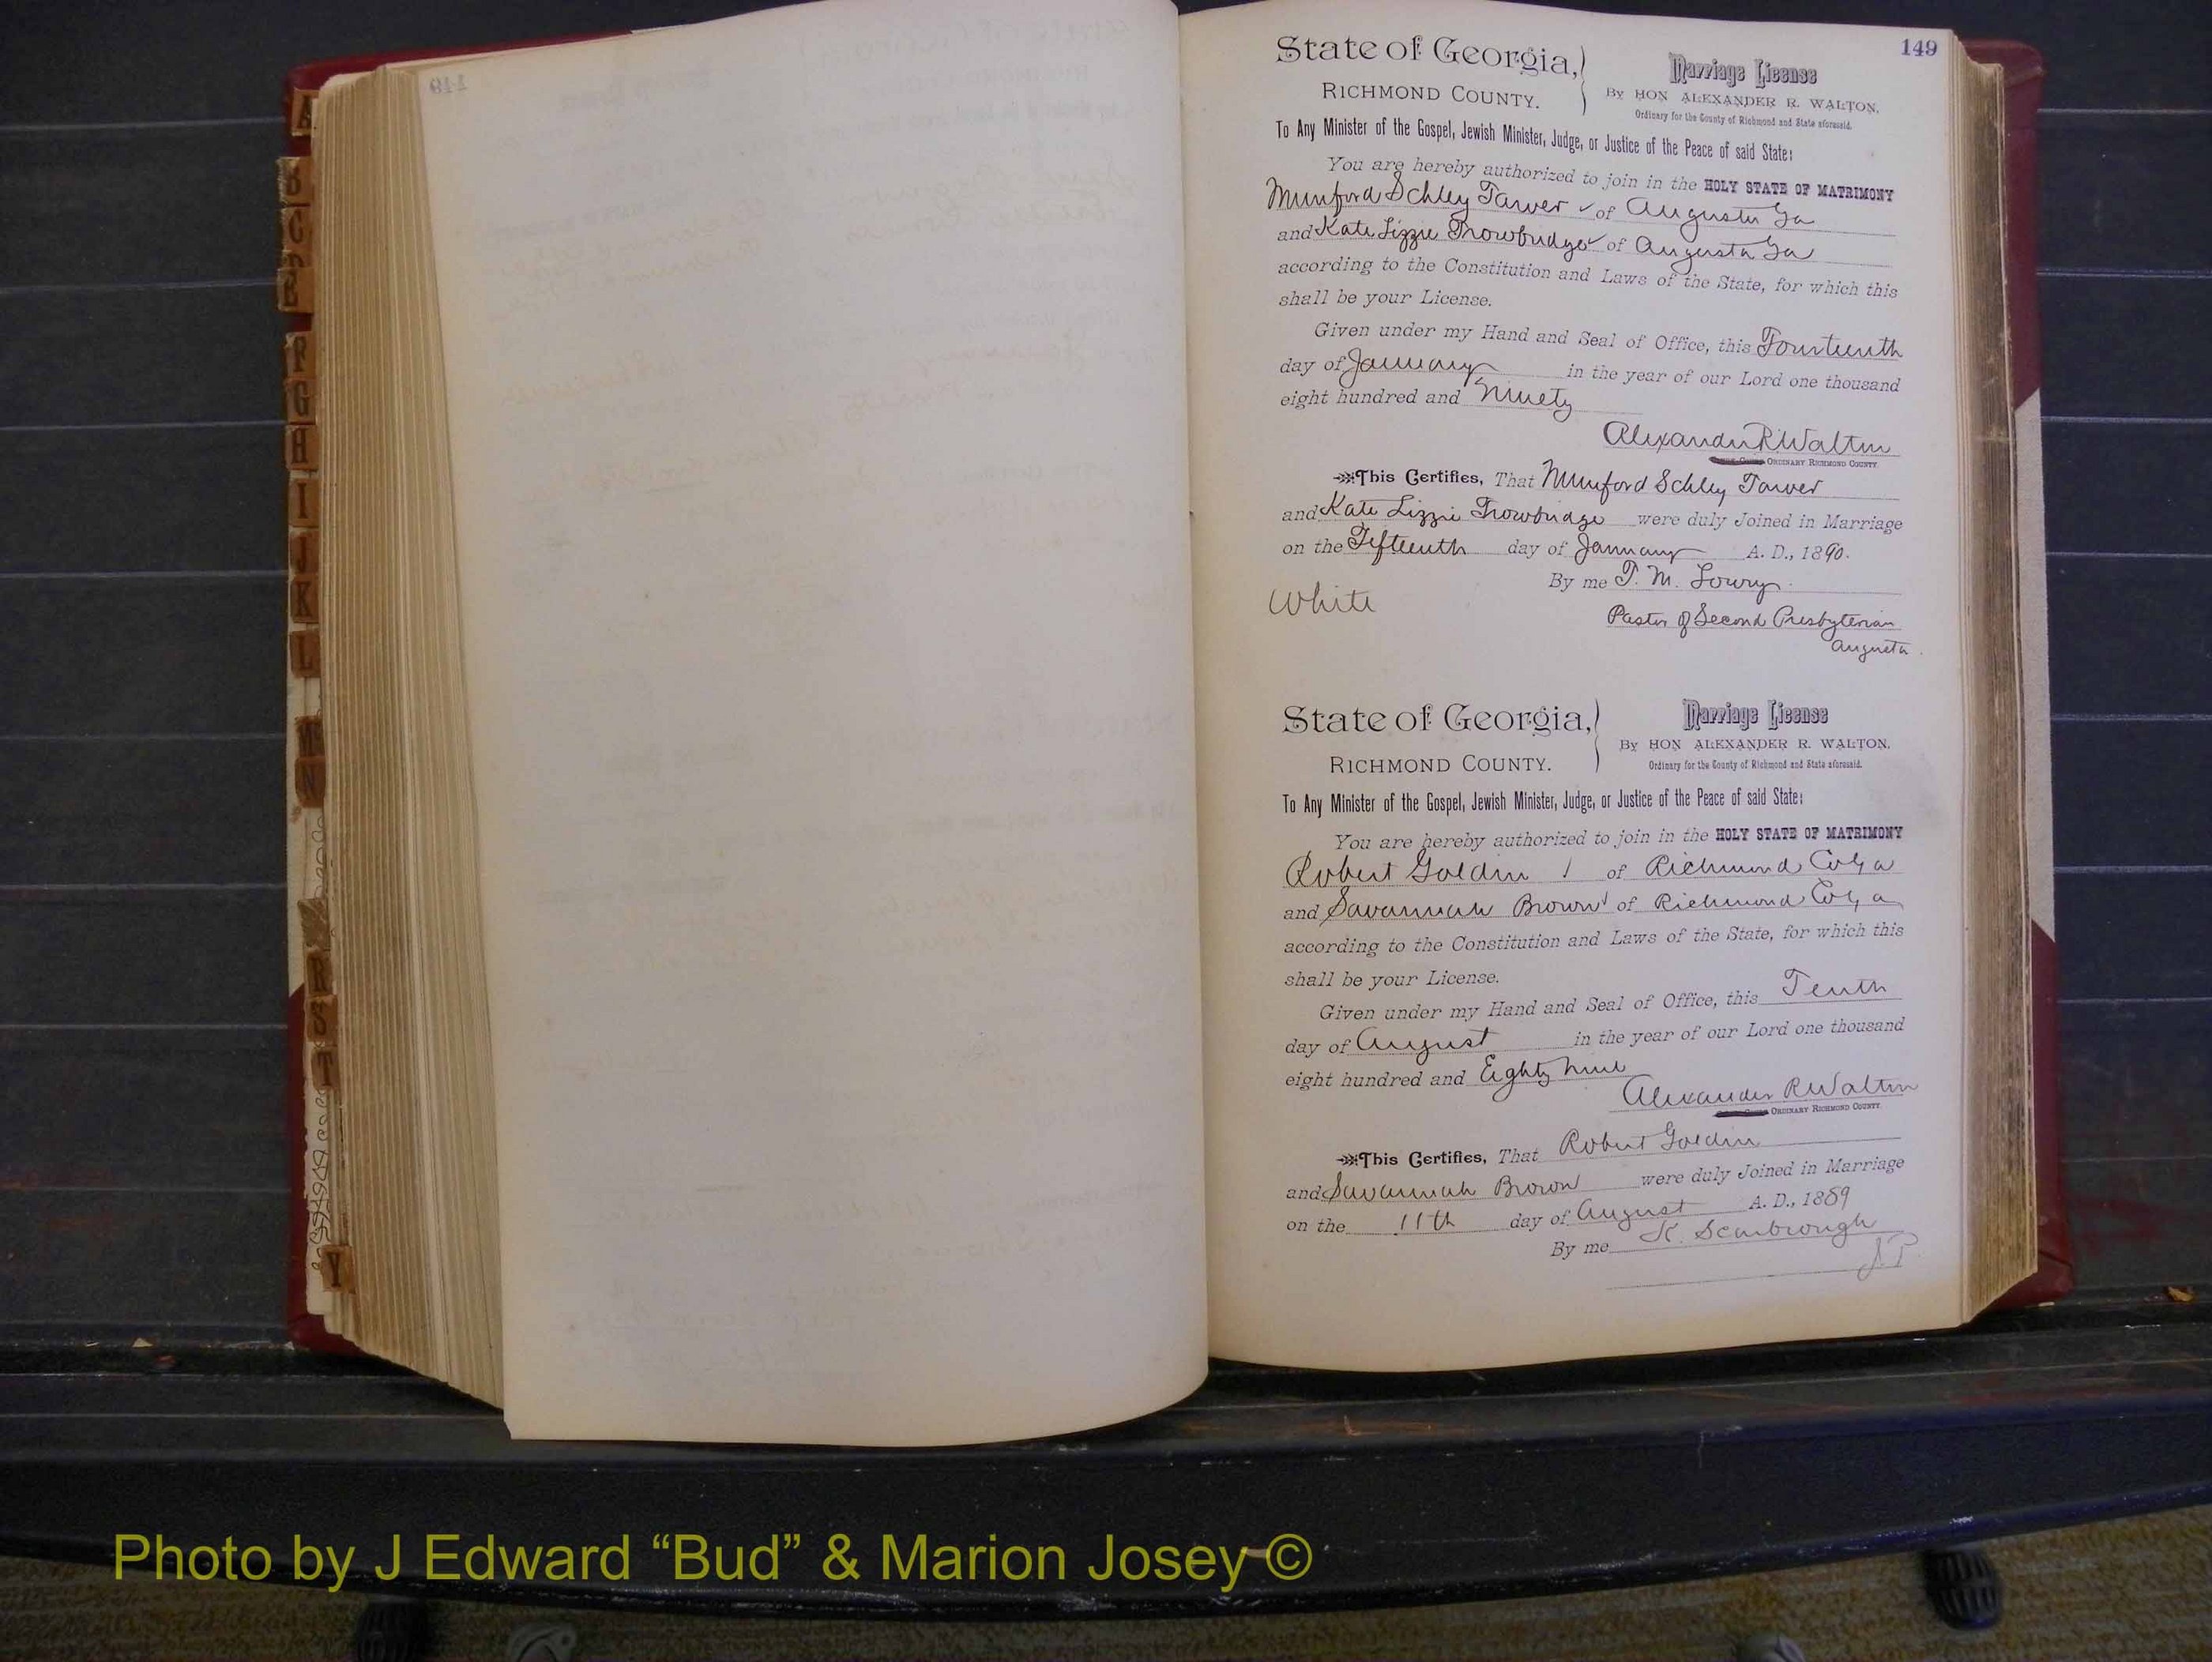 149
State of Georgia,
RICHMOND COUNTY.
Marriage License
By HON ALEXANDER R. WALTON,
Ordinary for the County of Richmond and State aforesaid.
To Any Minister of the Gospel, Jewish Minister, Judge, or Justice of the Peace of said State:
You are hereby authorized to join in the HOLY STATE OF MATRIMONY
Munford Schley Tarver of Augusta Ga
and Kate Lizzie Trowbridge of Augusta Ga
according to the Constitution and Laws of the State, for which this
shall be your License.
Given under my Hand and Seal of Office, this Fourteenth
day of January in the year of our Lord one thousand
eight hundred and Ninety
Alexander R Walton
ORDINARY RICHMOND COUNTY.
This Certifies, That Munford Schley Tarver
and Kate Lizzie Trowbridge were duly Joined in Marriage
on the Fifteenth day of January A. D., 1890.
By me T. M. Lowry.
White
Pastor of Second Presbyterian
Augusta.
State of Georgia,
RICHMOND COUNTY.
Marriage License
By HON ALEXANDER R. WALTON,
Ordinary for the County of Richmond and State aforesaid.
To Any Minister of the Gospel, Jewish Minister, Judge, or Justice of the Peace of said State:
You are hereby authorized to join in the HOLY STATE OF MATRIMONY
Robert Goldin of Richmond Co Ga
and Savannah Brown of Richmond Co Ga
according to the Constitution and Laws of the State, for which this
shall be your License.
Given under my Hand and Seal of Office, this Tenth
day of August in the year of our Lord one thousand
eight hundred and Eighty Nine
Alexander R Walton
ORDINARY RICHMOND COUNTY.
This Certifies, That Robert Goldin
and Savannah Brown were duly Joined in Marriage
on the 11th day of August A. D., 1889
By me K. Scarbrough
J P
A
B
C
E
F
G
H
I
J
K
L
M
N
R
S
T
Y
Photo by J Edward “Bud” & Marion Josey ©